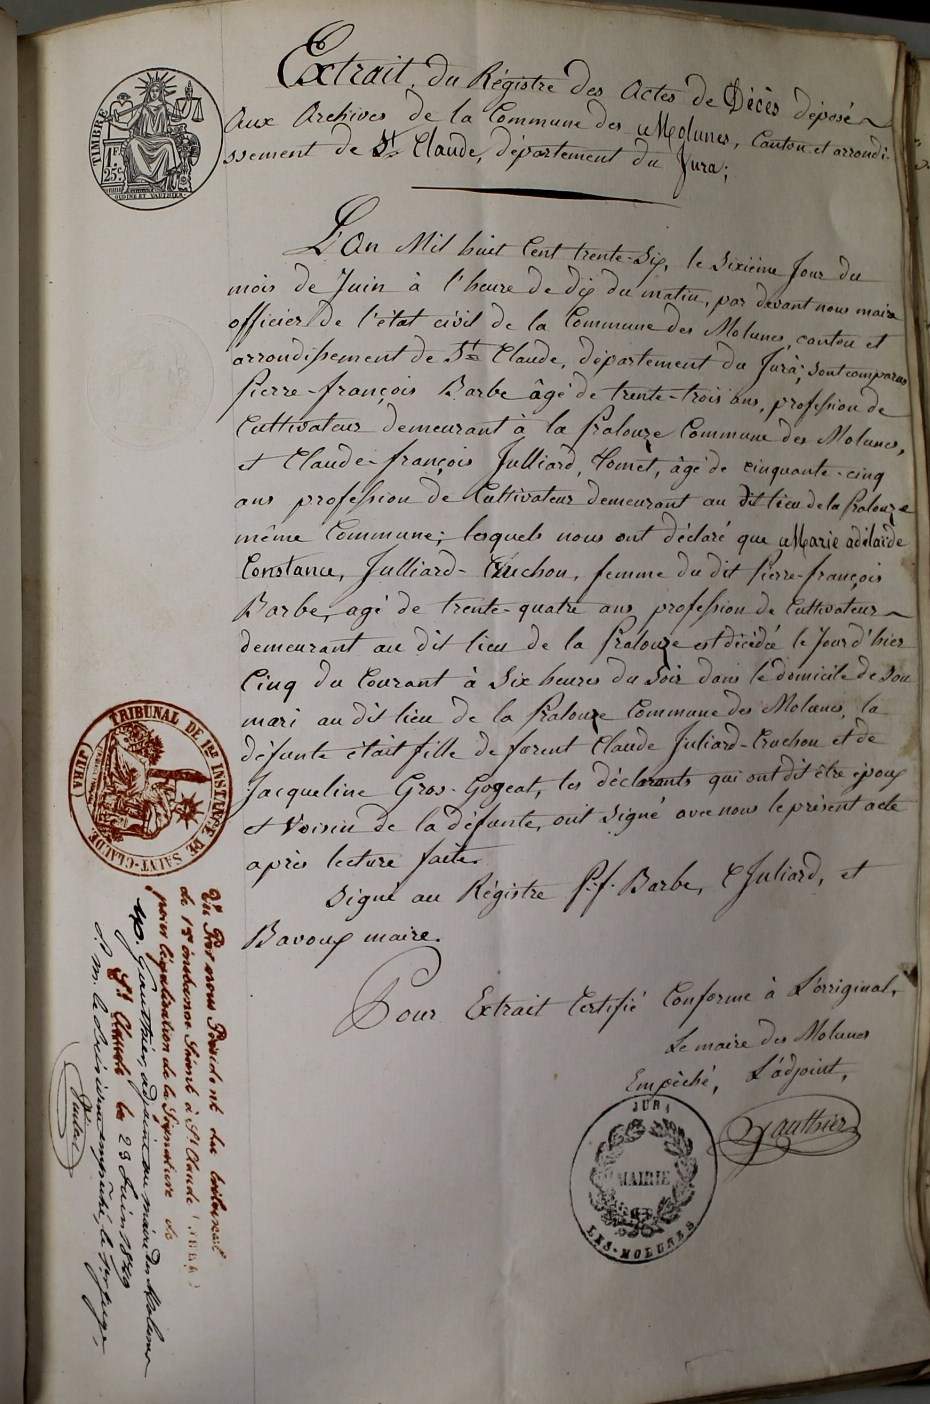 Extrait du Régistre des actes de Décès déposé
aux archives de la Commune des Molunes, canton et arrondi-
ssement de St Claude, département du Jura;
TIMBRE
1F.
25c.
OUDINE ET VAUTHIER
L'an Mil huit Cent trente-six, le sixième Jour du
mois de Juin à l'heure de dix du matin, par devant nous maire
officier de l'état civil de la Commune des Molunes, canton et
arrondissement de St Claude, département du Jura; sont comparus
Pierre-françois Barbe âgé de trente-trois ans, profession de
Cultivateur demeurant à la Pralouze Commune des Molunes,
et Claude-françois Julliard, Comèt, âgé de cinquante-cinq
ans profession de Cultivateur demeurant au dit lieu de la Pralouze
même Commune; lesquels nous ont déclaré que Marie adélaïde
Constance, Julliard-Cruchon, femme du dit Pierre-françois
Barbe, agé de trente-quatre ans profession de Cultivateur
demeurant au dit lieu de la Pralouze est décédée le Jour d'hier
Cinq du Courant à Six heures du Soir dans le domicile de son
mari au dit lieu de la Pralouze Commune des Molunes, la
défunte était fille de Claude Juliard-Cruchon et de
Jacqueline Gros-Gogeat, les déclarants qui ont dit être époux
et Voisin de la défunte, ont signé avec nous le présent acte
après lecture faite.
Signé au Régistre P.f. Barbe, C Juliard, et
Bavoux maire.
Pour Extrait Certifié Conforme à L'original,
Le maire des Molunes
Empêché, L'adjoint,
Gauthier
JURA
MAIRIE
LES-MOLUNES
TRIBUNAL DE 1re INSTANCE DE SAINT-CLAUDE.
(JURA)
Vu Par nous Président du tribunal
de 1re instance Séant à St Claude (JURA)
pour légalisation de la Signature de
Mr. Gauthier, adjoint au maire des Molunes
St Claude le 23 Juin 1849
P. M. le Président empêché, le Juge,